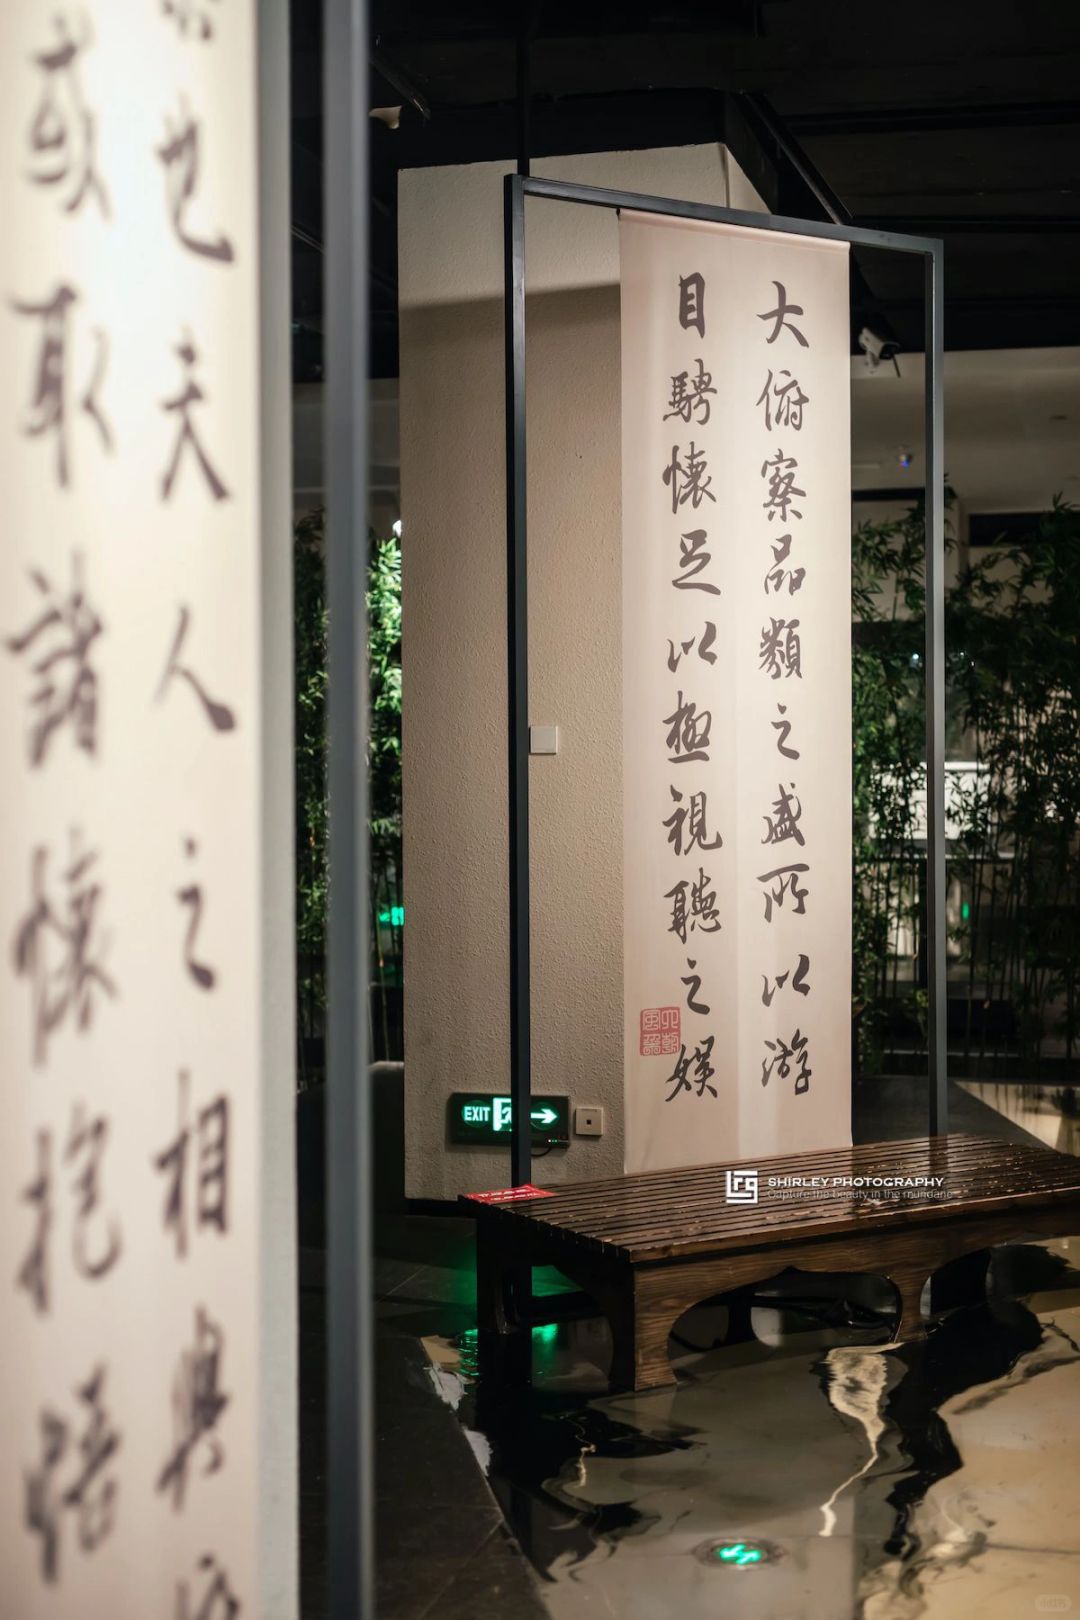 大俯察品類之盛所以游
目騁懷足以極視聽之娛
也夫人之相與
或取諸懷抱悟
EXIT
SHIRLEY PHOTOGRAPHY
Capture the beauty in the mundane